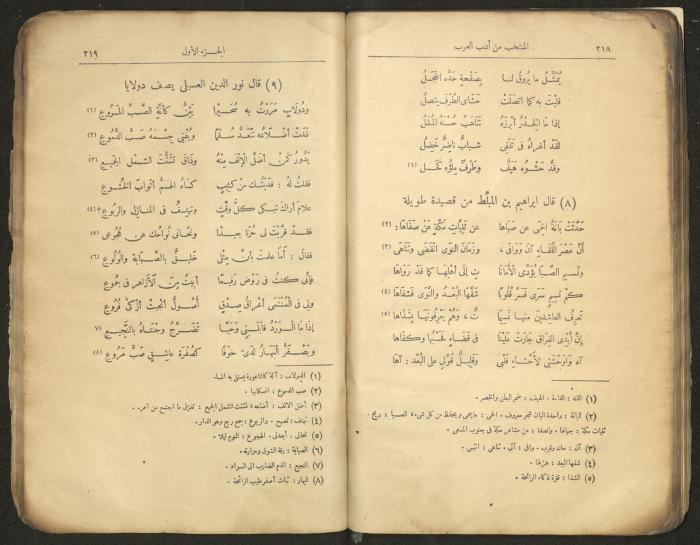 ٢١٨
المنتخب من أدب العرب
يمثل ما يروق لنا بصفحة خده الخجل
فليت به كما اتصلت حشاى الطرف يتصل
إذا ما الخدر أبرزه تناهب حسنه المقل
لقد أغراه فى تلفى شباب ناضر خضل
وقد حشوه هيف وطرف ملؤه كحل (١)
(٨) قال ابراهيم بن المبلط من قصيدة طويلة
حدثت بانة الحمى عن صباها عن ثنيات مكة عن صفاها: (٢)
أن عصر اللقاء آن ووافى ، وزمان النوى انقضى وتناهى (٣)
ونسيم الصبا يؤدى الأمانا ت إلى أهلها كما قد رواها
كم نسيم سرى فسر قلوبا شفها البعد والنوى فشفاها (٤)
تعرف العاشقين منها نسيما ت ، وهم يعرفونها بشذاها (٥)
إن أيدى الفراق جارت علينا فى قضاء لحسنها وكفاها
آه واوحشتى لأحشاء قلبى وقليل قولى على البعد : آها
(١) القد : القامة . الهيف : ضمر البطن والخصر .
(٢) البانة : واحدة البان شجر معروف . الحمى : ما يحمى ويحفظ من كل شىء * الصبا : ريح .
ثنيات مكة : جبالها . والصفا : من مشاعر مكة فى جنوب المسعى .
(٣) آن : حان وقرب . وافى : أتى . تناهى : انتهى .
(٤) شفها البعد : هزلها .
(٥) الشذا : قوة ذكاء الرائحة .
الجزء الأول
٢١٩
(٩) قال نور الدين العسيلى يصف دولابا
ودولاب مررت به سحيرا يئن كأنه الصب المروع (١)
غدت أضلاعه تنعد سقما ويفنى جسمه صب الدموع (٢)
يدور كمن أضل الإلف منه وذاق تشتت الشمل الجميع (٣)
فقلت له : فديتك من كئيب كساه الهم أثواب الخشوع
علام أراك تبكى كل وقت وتهتف فى المنازل والربوع (٤)
فقد قربت لى حزنا بعيدا ونحانى نواحك عن هجوعى (٥)
فقال : أما علمت بأن مثلى خليق بالصبابة والولوع (٦)
فإنى كنت فى روض رفيعا أبيت من الأزاهر فى جموع
ولى فى المنتمى أعراق صدق أصول أنجبت أزكى فروع
إذا ما الورد قابلنى وحيا تضرج وجنتاه بالنجيع ٧
ويصفر البهار لدى خوفا كصفرة عاشق صب مروع (٨)
(١) الدولاب : آلة كالناعورة يستقى به الماء .
(٢) صب الدموع : انسكابها .
(٣) أضل الالف : أضاعه * تشتت الشمل الجميع : تفرق ما اجتمع من أمره . .
(٤) تهتف : تصيح . والربوع : جمع ربع وهو الدار .
(٥) نحانى : أبعدنى . الهجوع : النوم ليلا .
(٦) الصبابة : رقة الشوق وحرارته .
(٧) النجيع : الدم الضارب الى السواد .
(٨) البهار : نبات أصفر طيب الرائحة .